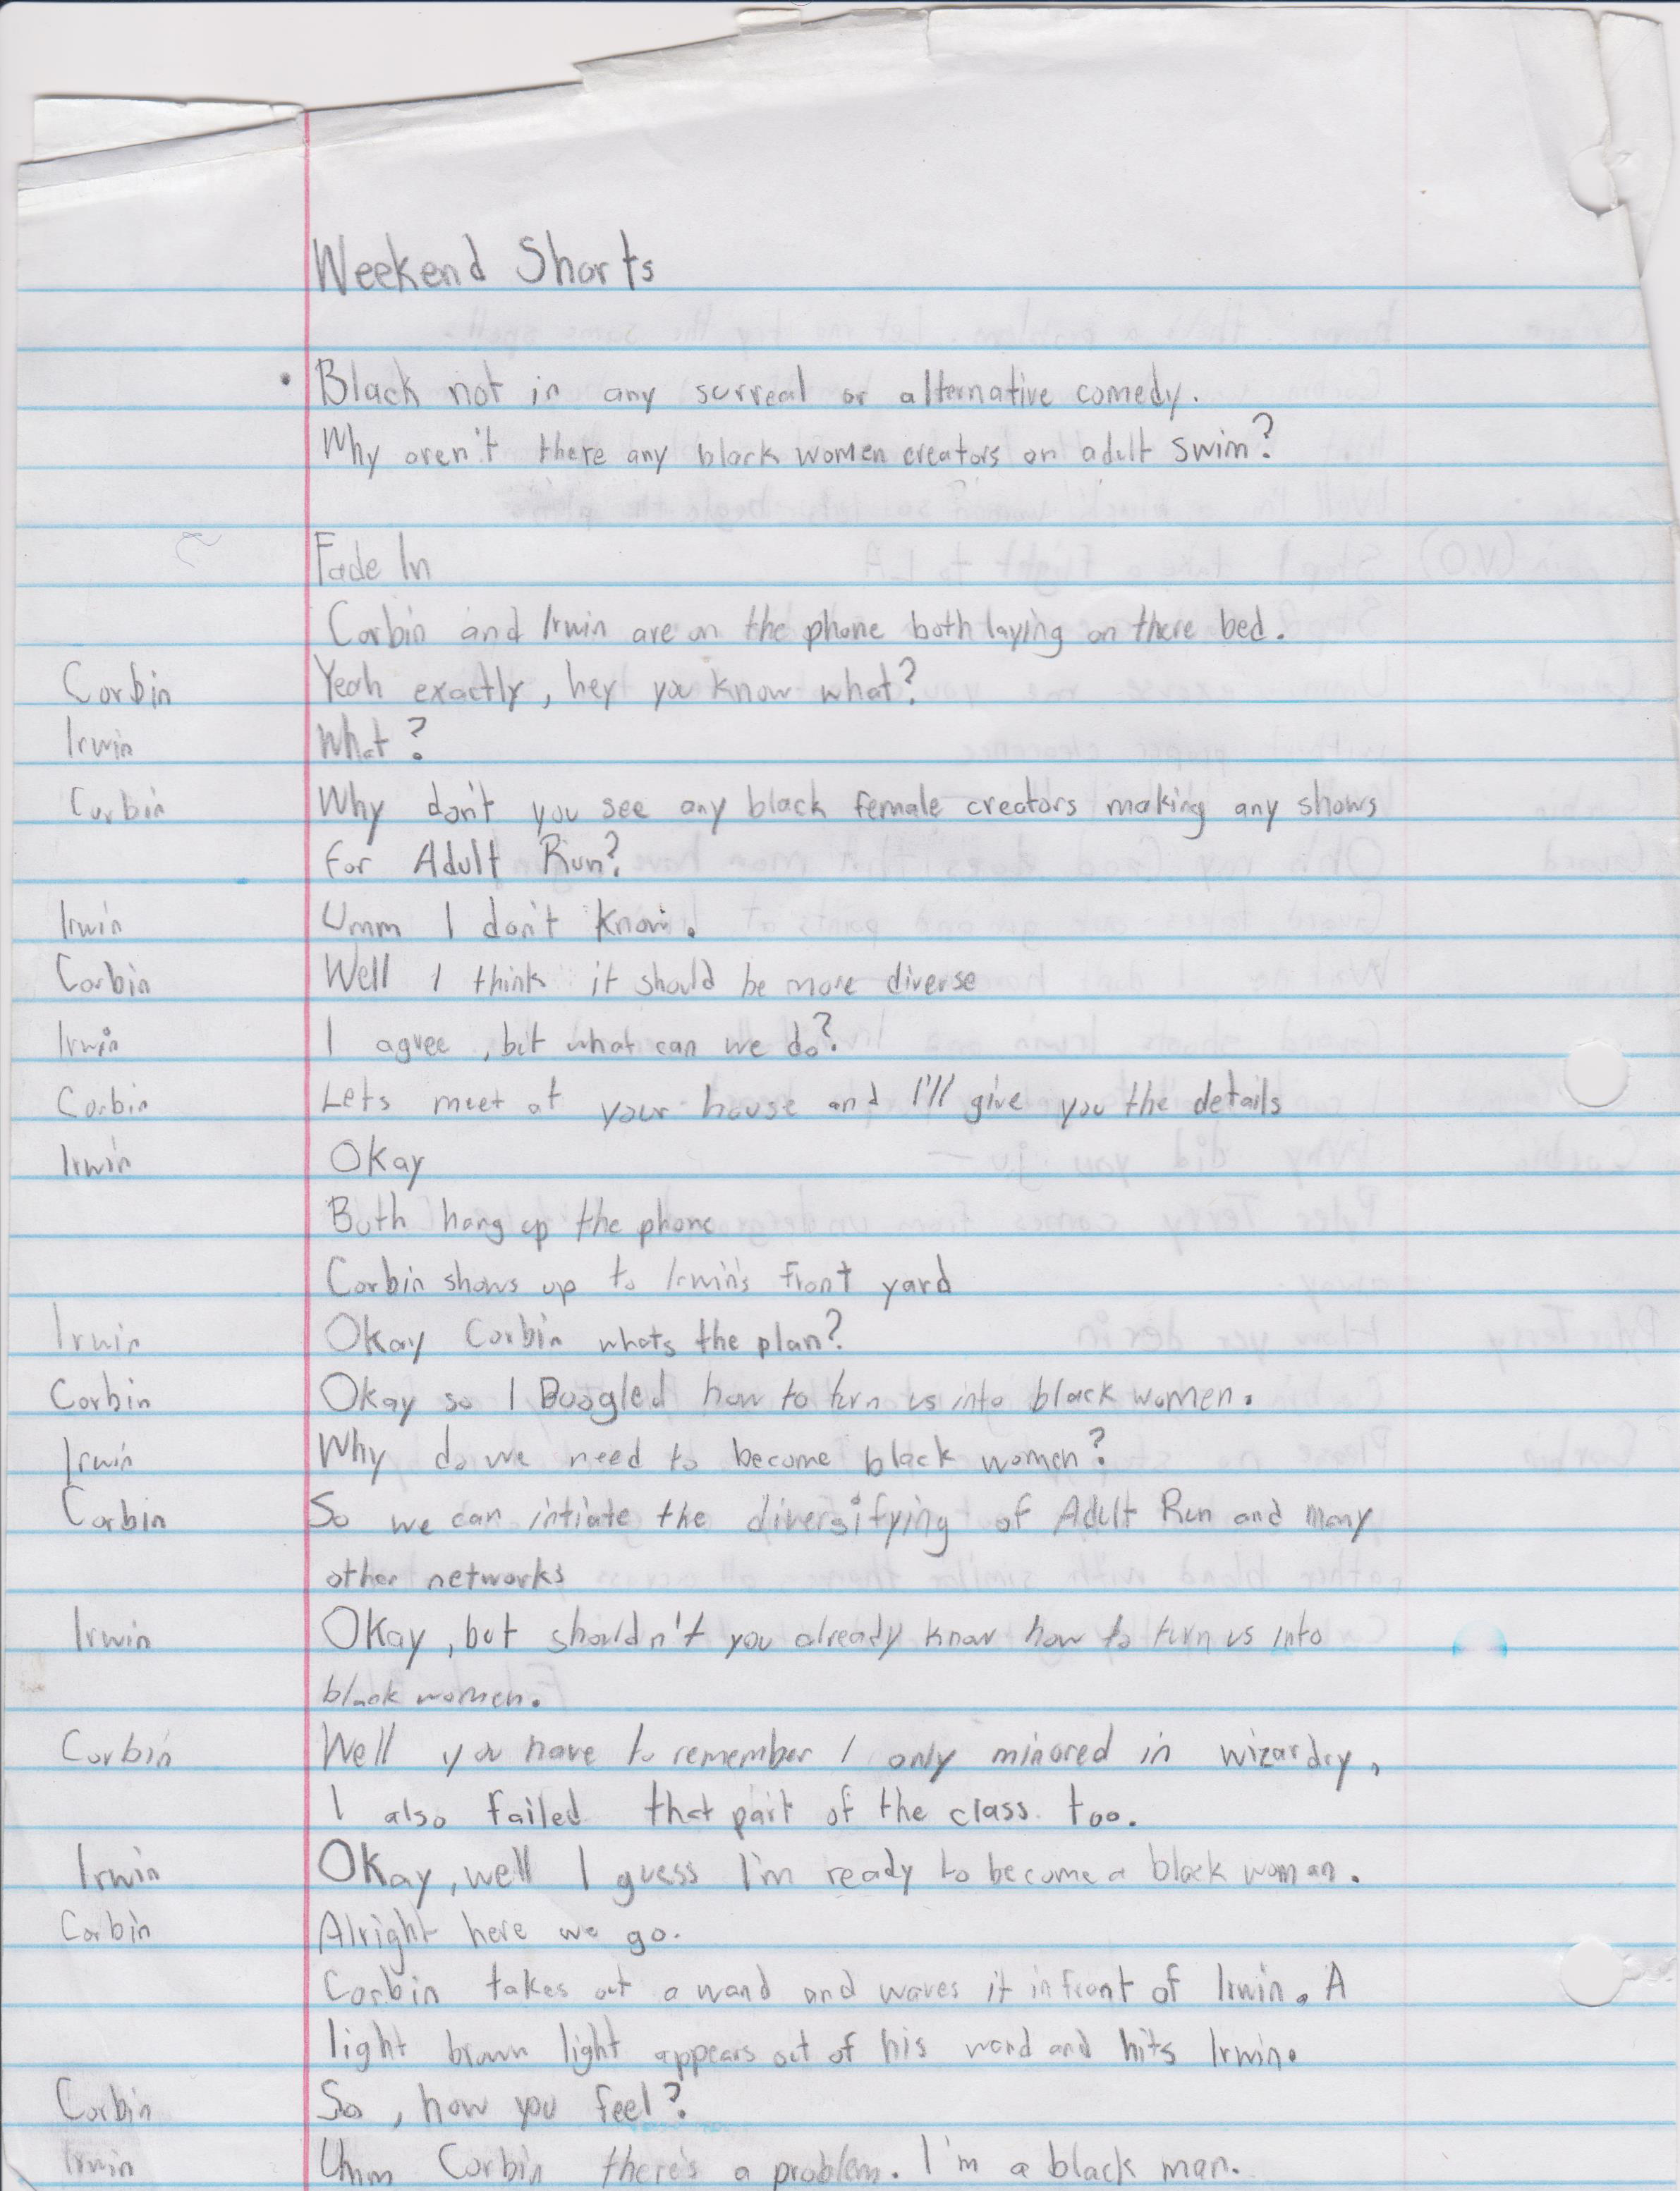 Weekend Shorts
• Black not in any surreal or alternative comedy.
Why aren't there any black women creators on adult swim?
Fade In
Corbin and Irwin are on the phone both laying on there bed.
Corbin Yeah exactly, hey you know what?
Irwin What?
Corbin Why don't you see any black female creators making any shows
for Adult Run?
Irwin Umm I don't know.
Corbin Well I think it should be more diverse
Irwin I agree, but what can we do?
Corbin Lets meet at your house and I'll give you the details
Irwin Okay
Both hang up the phone
Corbin shows up to Irwin's front yard
Irwin Okay Corbin whats the plan?
Corbin Okay so I Boogled how to turn us into black women.
Irwin Why do we need to become black women?
Corbin So we can intiate the diversifying of Adult Run and many
other networks
Irwin Okay, but shouldn't you already know how to turn us into
black women.
Corbin Well you have to remember I only minored in wizardry,
I also failed that part of the class too.
Irwin Okay, well I guess I'm ready to become a black woman.
Corbin Alright here we go.
Corbin takes out a wand and waves it infront of Irwin. A
light brown light appears out of his wand and hits Irwin.
Corbin So, how you feel?
Irwin Umm Corbin there's a problem. I'm a black man.